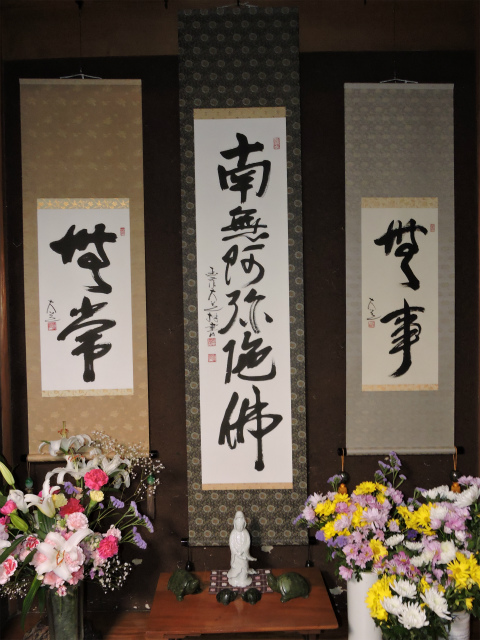 無事
南無阿弥陀佛
無常